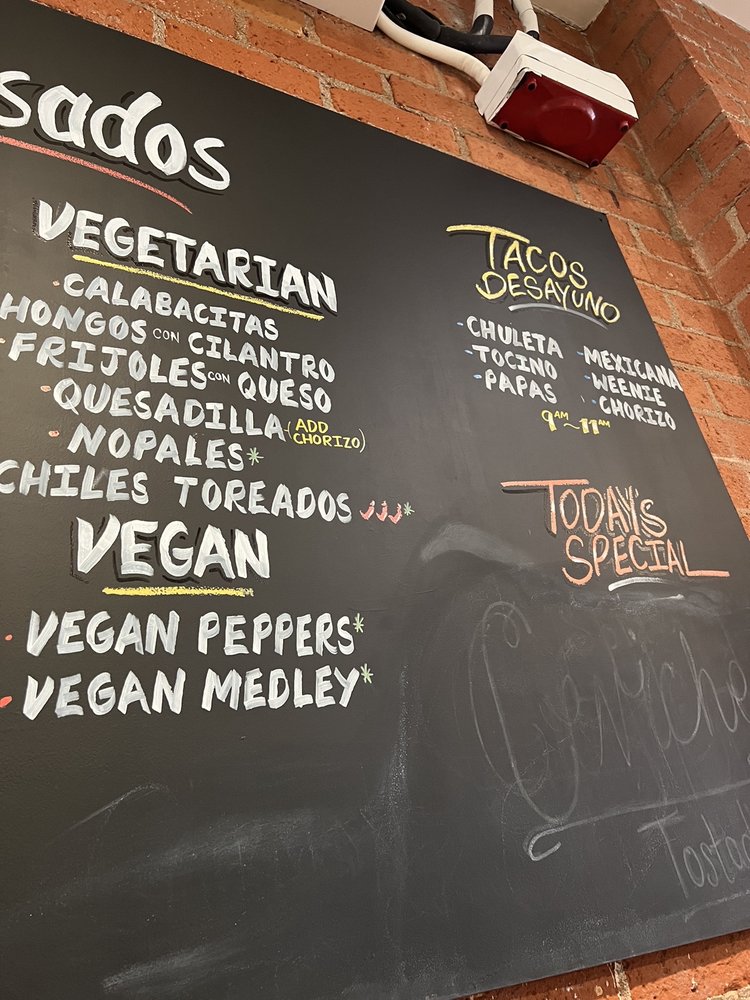 sados
VEGETARIAN
CALABACITAS
HONGOS CON CILANTRO
FRIJOLES CON QUESO
QUESADILLA (ADD CHORIZO)
NOPALES*
CHILES TOREADOS *
VEGAN
VEGAN PEPPERS*
VEGAN MEDLEY*
TACOS
DESAYUNO
-CHULETA
-TOCINO
-PAPAS
-MEXICANA
-WEENIE
-CHORIZO
9AM~11AM
TODAY'S
SPECIAL
Ceviche
Tostad